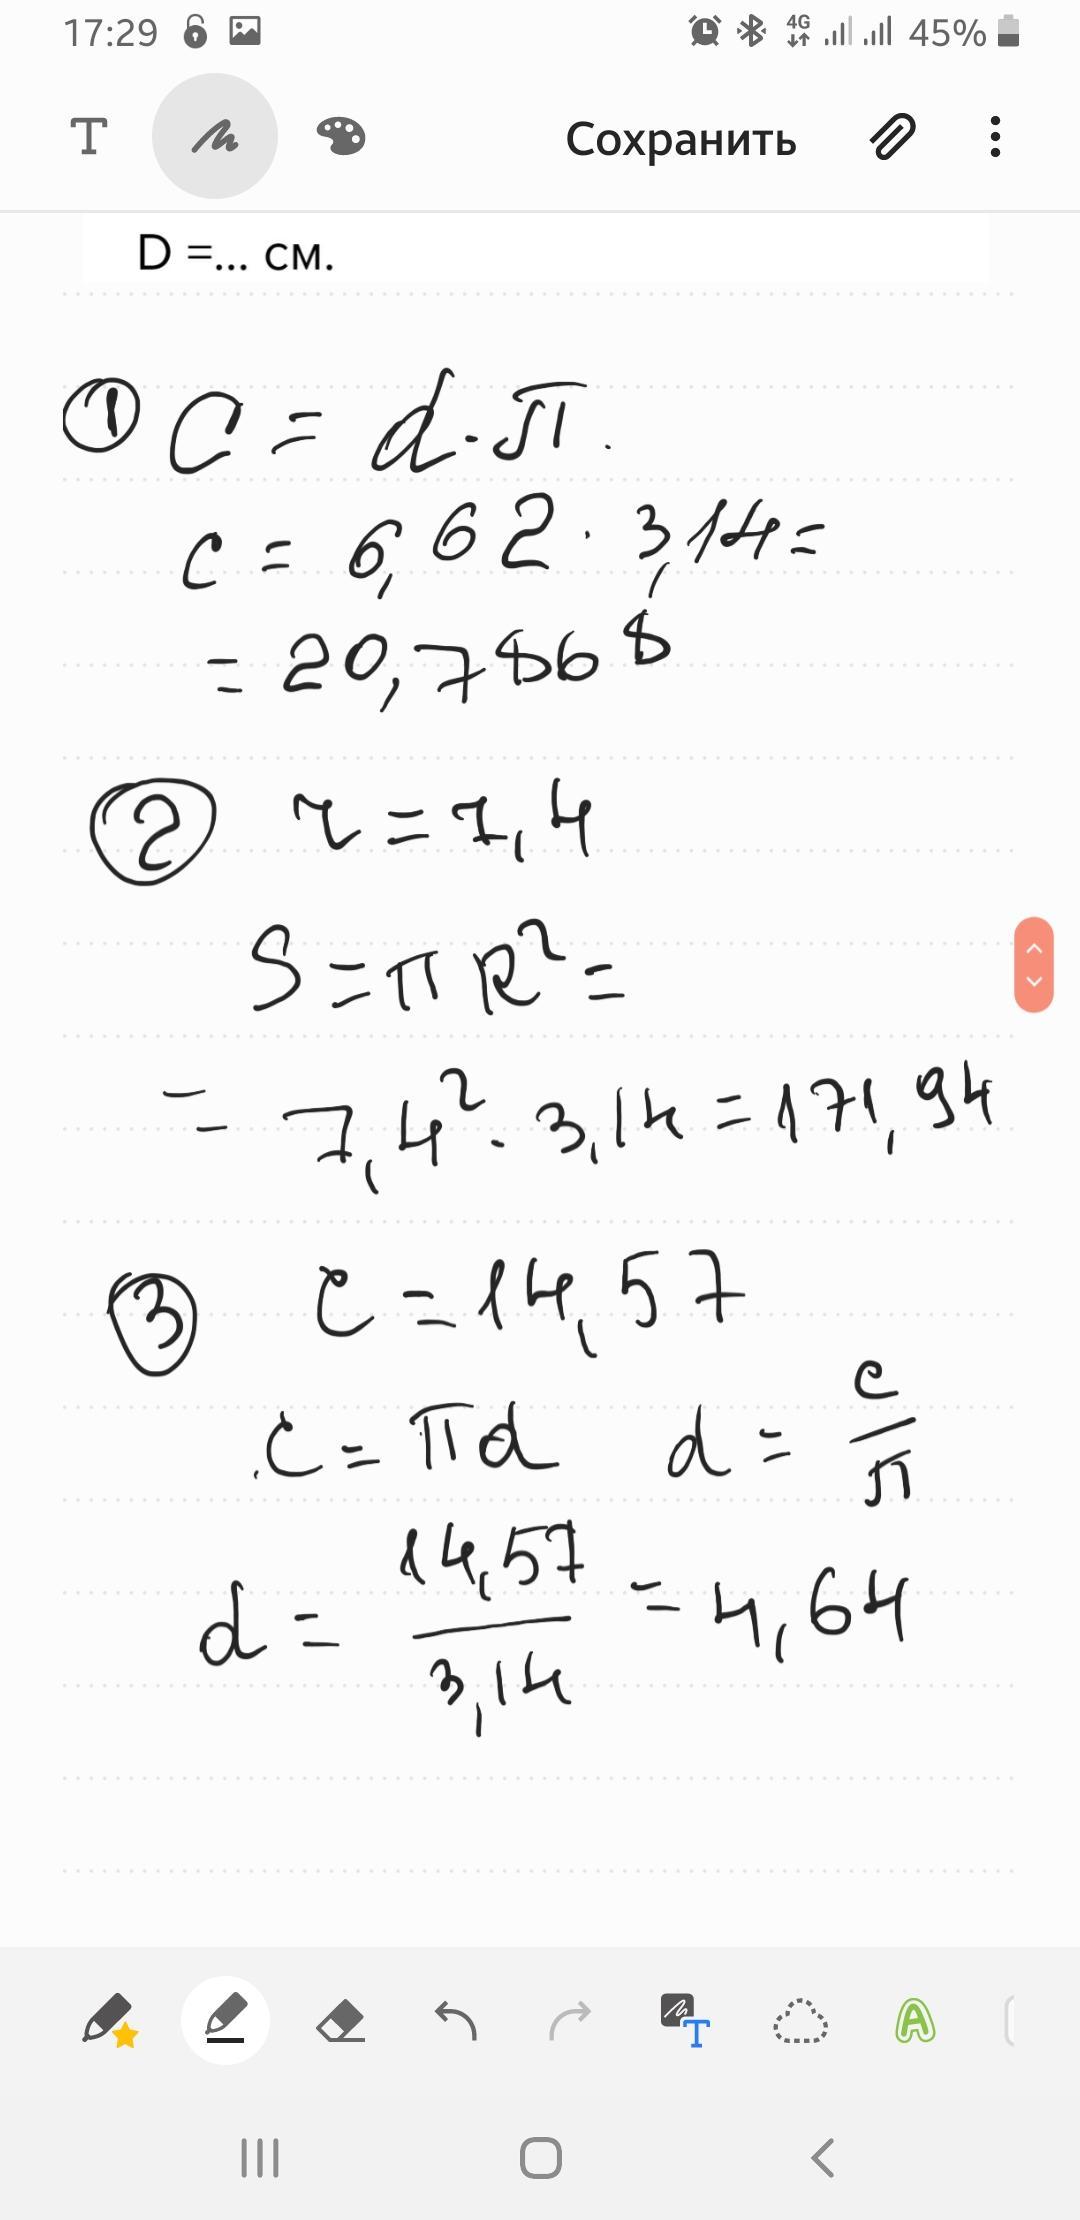 17:29 4G 45%
T Сохранить
D =... см.
① C = d · π.
c = 6,662 · 3,14 =
= 20,7868
② r = 7,4
S = π R² =
= 7,4² · 3,14 = 171,94
③ C = 14,57
c = πd d = c/π
d = 14,57/3,14 = 4,64
T A